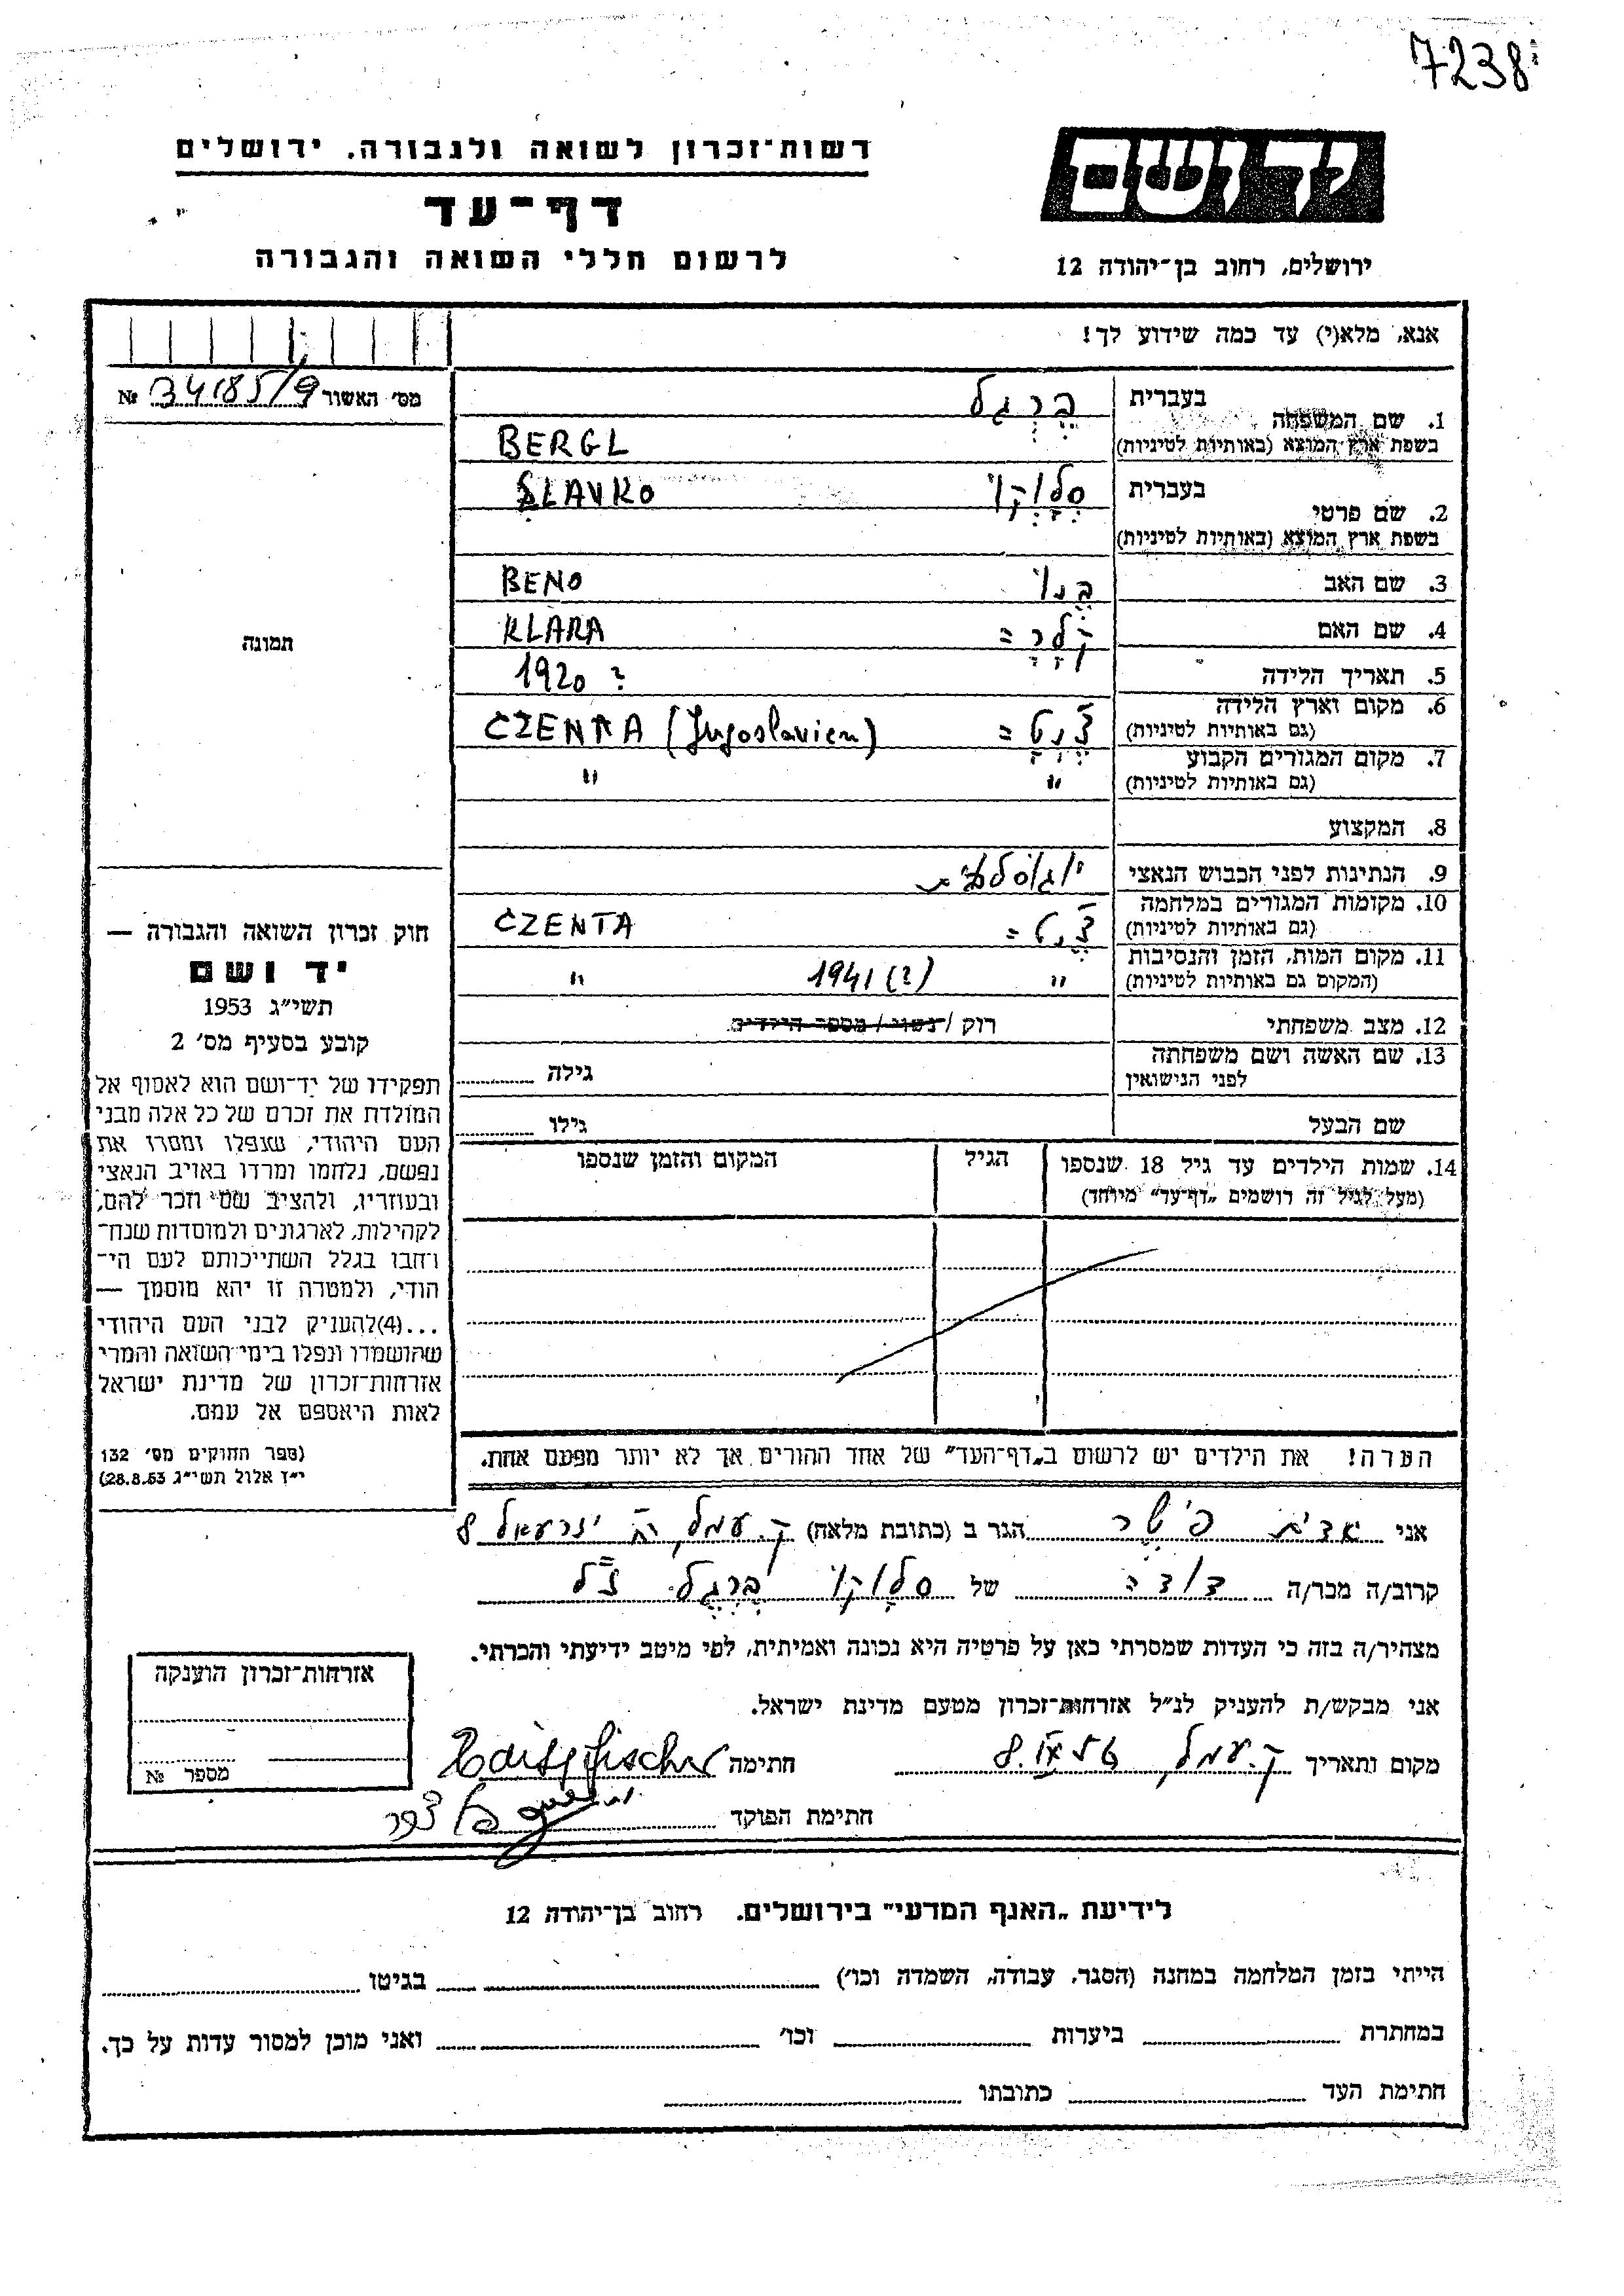 7238
רשות־זכרון לשואה ולגבורה, ירושלים
יד ושם
דף־עד
לרשום חללי השואה והגבורה
ירושלים, רחוב בן־יהודה 12
אנא, מלא(י) עד כמה שידוע לך!
מס׳ האשור 34185/9 №
1. שם המשפחה
בעברית ברגל
בשפת ארץ המוצא (באותיות לטיניות) BERGL
2. שם פרטי
בעברית סלוקו SLAVKO
בשפת ארץ המוצא (באותיות לטיניות)
3. שם האב בנו BENO
4. שם האם קלרה KLARA
5. תאריך הלידה 1920 ?
6. מקום וארץ הלידה
(גם באותיות לטיניות) צנטה CZENTA (Jugoslavien)
7. מקום המגורים הקבוע
(גם באותיות לטיניות) " "
8. המקצוע
9. הנתינות לפני הכבוש הנאצי
10. מקומות המגורים במלחמה
(גם באותיות לטיניות) צנטה CZENTA
11. מקום המות, הזמן והנסיבות
(המקום גם באותיות לטיניות) " 1941 (?) "
12. מצב משפחתי רוק / נשוי / מספר הילדים
13. שם האשה ושם משפחתה
לפני הנישואין גילה
שם הבעל גילו
14. שמות הילדים עד גיל 18 שנספו
(מעל לגיל זה רושמים „דף־עד״ מיוחד)
הגיל
המקום והזמן שנספו
הערה! את הילדים יש לרשום ב„דף־העד״ של אחד ההורים אך לא יותר מפעם אחת.
תמונה
חוק זכרון השואה והגבורה —
יד ושם
תשי״ג 1953
קובע בסעיף מס׳ 2
תפקידו של יד־ושם הוא לאסוף אל
המולדת את זכרם של כל אלה מבני
העם היהודי, שנפלו ומסרו את
נפשם, נלחמו ומרדו באויב הנאצי
ובעוזריו, ולהציב שם וזכר להם,
לקהילות, לארגונים ולמוסדות שנח־
רחבו בגלל השתייכותם לעם הי־
הודי, ולמטרה זו יהא מוסמך —
...(4)להעניק לבני העם היהודי
שהושמדו ונפלו בימי השואה והמרי
אזרחות־זכרון של מדינת ישראל
לאות היאספם אל עמם.
(ספר החוקים מס׳ 132
י״ז אלול תשי״ג 28.8.53)
אני אדית פישר הגר ב (כתובת מלאה) ק. עמל יזרעאל 8
קרוב/ה מכר/ה דודה של סלוקו ברגל ז״ל
מצהיר/ה בזה כי העדות שמסרתי כאן על פרטיה היא נכונה ואמיתית, לפי מיטב ידיעתי והכרתי.
אני מבקש/ת להעניק לנ״ל אזרחות־זכרון מטעם מדינת ישראל.
מקום ותאריך ק. עמל חתימה Edith Fischer
חתימת הפוקד
אזרחות־זכרון הוענקה
מספר №
לידיעת „האגף המדעי״ בירושלים. רחוב בן־יהודה 12
הייתי בזמן המלחמה במחנה (הסגר, עבודה, השמדה וכו׳) בגיטו
במחתרת ביערות וכו׳ ואני מוכן למסור עדות על כך.
חתימת העד כתובתו